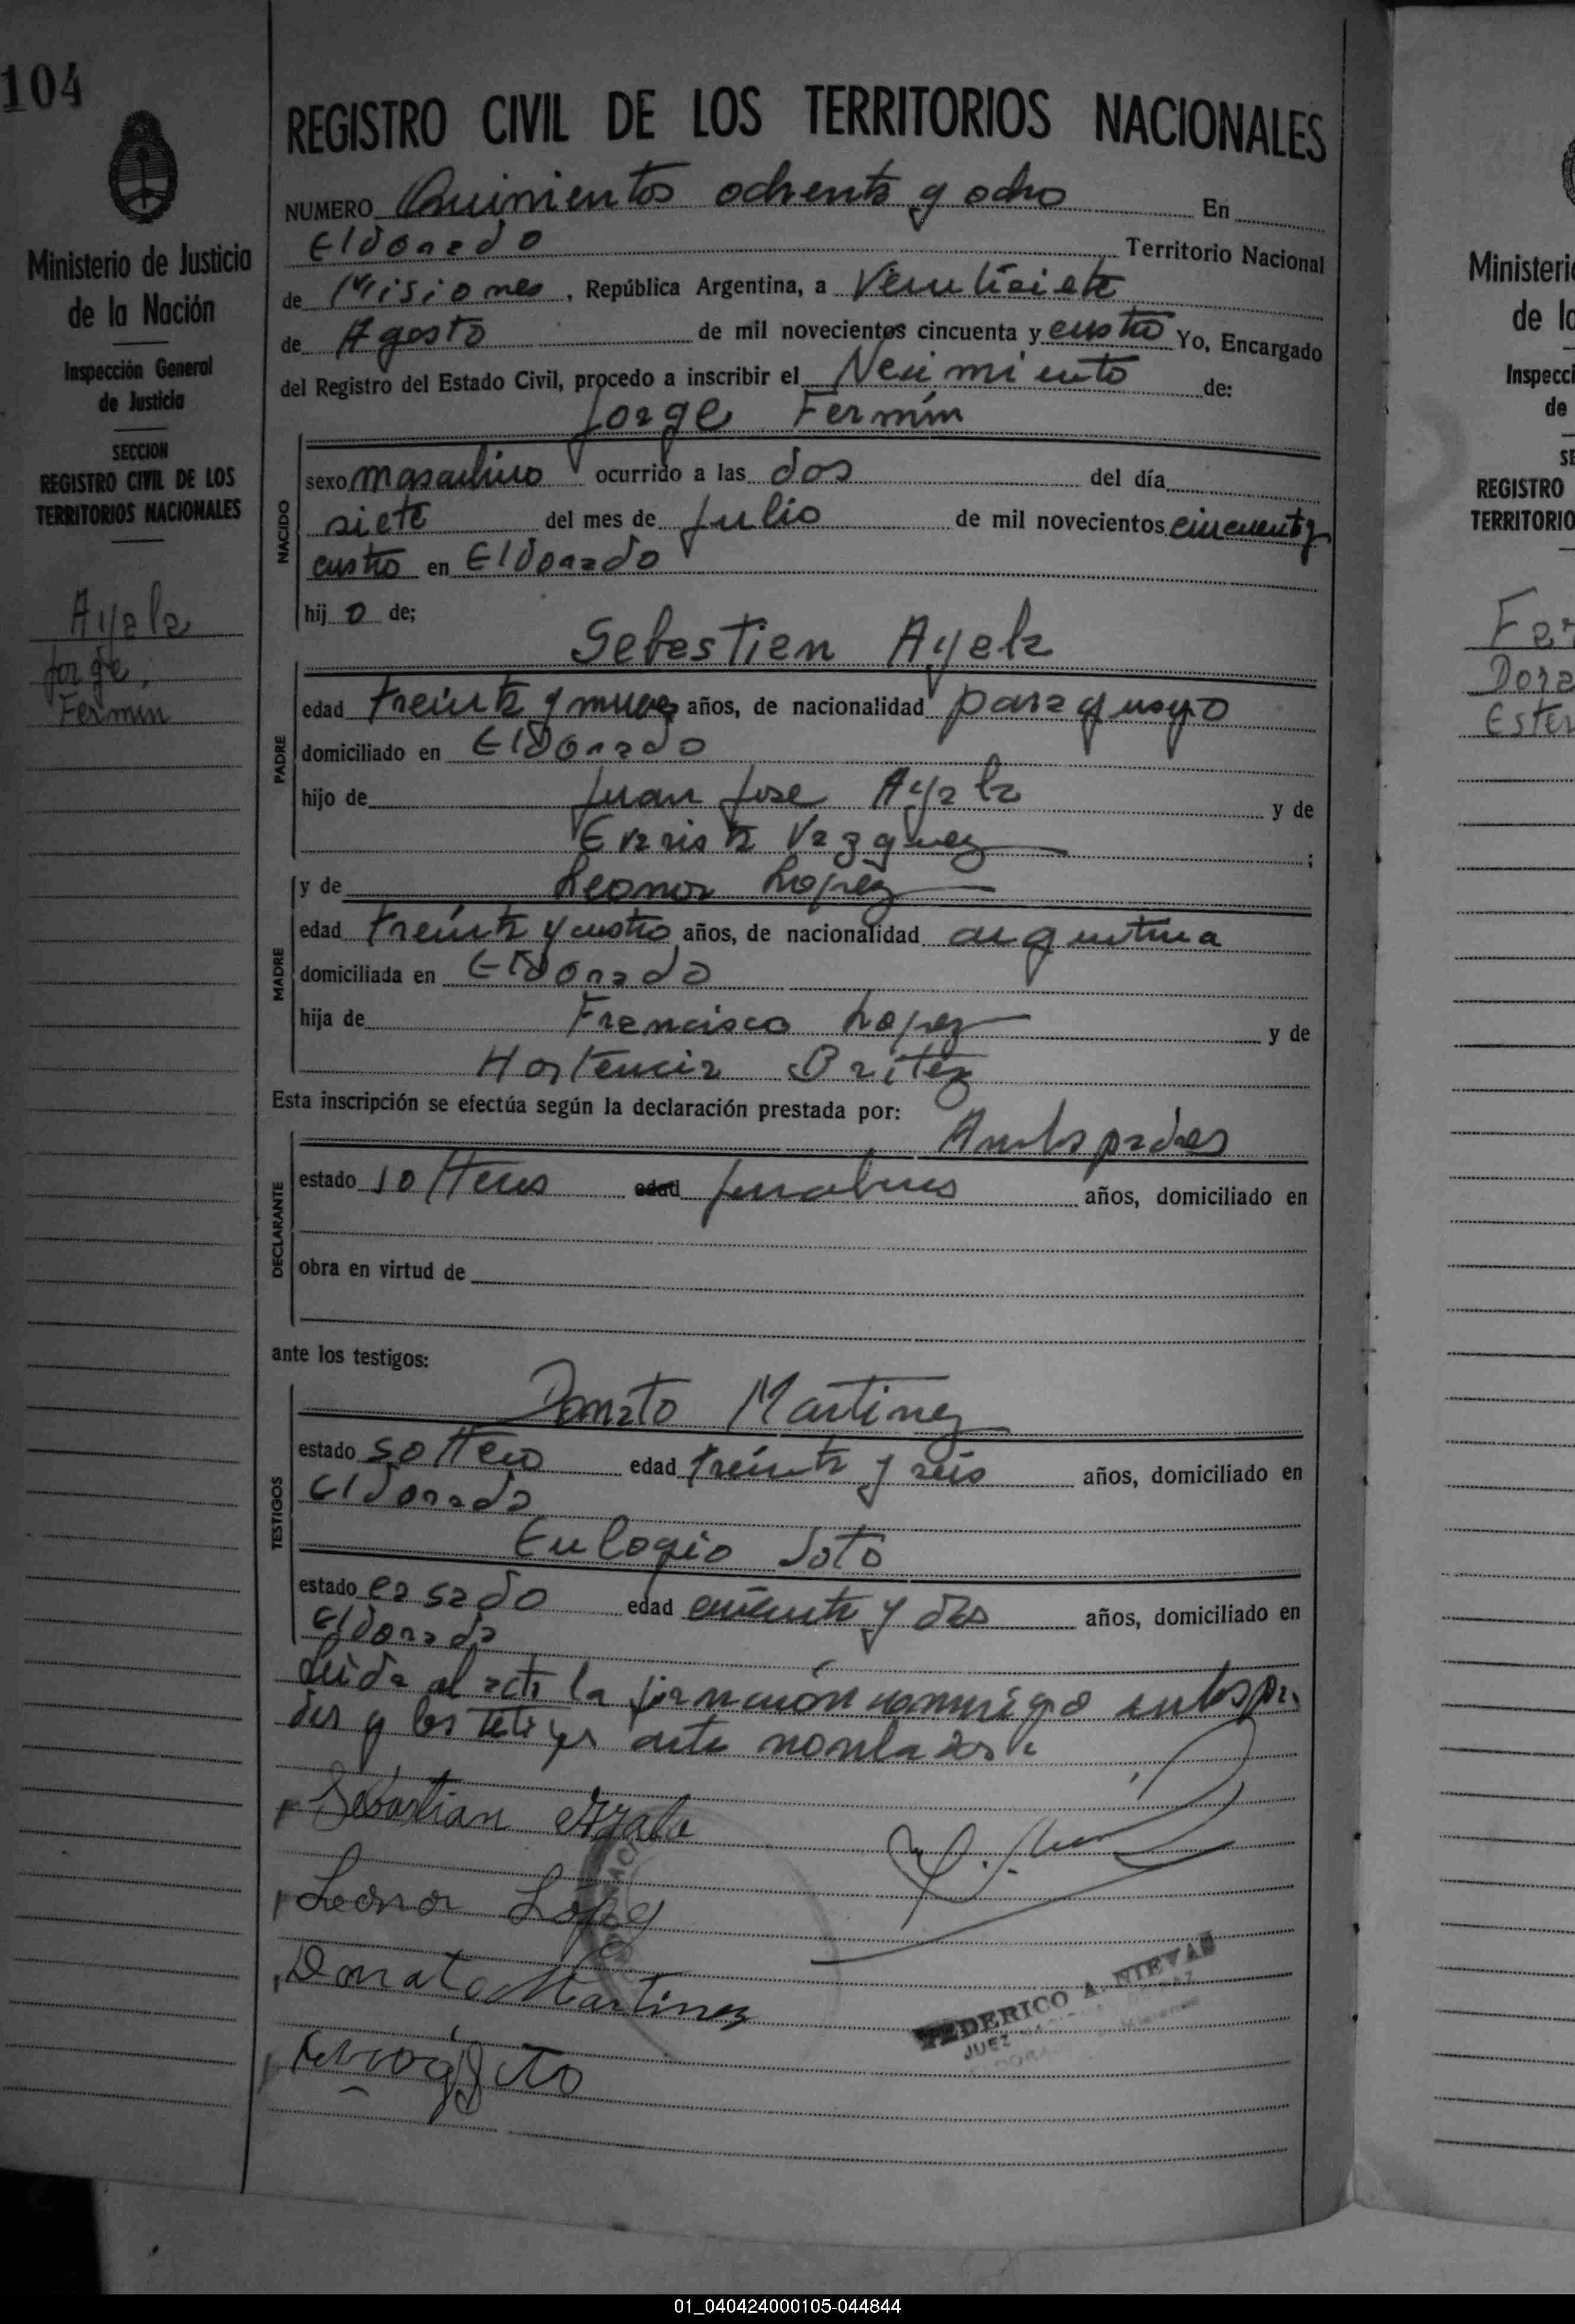 104
Ministerio de Justicia
de la Nación
Inspección General
de Justicia
SECCION
REGISTRO CIVIL DE LOS
TERRITORIOS NACIONALES
Ayala
Jorge,
Fermin
REGISTRO CIVIL DE LOS TERRITORIOS NACIONALES
NUMERO Quinientos ochenta y ocho En
Eldorado Territorio Nacional
de Misiones, República Argentina, a Veintisiete
de Agosto de mil novecientos cincuenta y cuatro Yo, Encargado
del Registro del Estado Civil, procedo a inscribir el Nacimiento de:
Jorge Fermín
NACIDO
sexo masculino ocurrido a las dos del día
siete del mes de Julio de mil novecientos cincuenta y
cuatro en Eldorado
hij o de;
Sebastian Ayala
PADRE
edad treinta y nueve años, de nacionalidad paraguayo
domiciliado en Eldorado
hijo de Juan Jose Ayala y de
Evarista Vazquez ;
y de Leonor Lopez
MADRE
edad treinta y cuatro años, de nacionalidad argentina
domiciliada en Eldorado
hija de Francisco Lopez y de
Hortencia Britez
Esta inscripción se efectúa según la declaración prestada por:
Ambos padres
DECLARANTE
estado solteros edad años, domiciliado en
obra en virtud de
ante los testigos:
Donato Martinez
TESTIGOS
estado soltero edad treinta y seis años, domiciliado en
Eldorado
Eulogio Soto
estado casado edad y dos años, domiciliado en
Eldorado
Leida el acta la firman conmigo ambos pa
dres y los testigos
Sebastian Ayala
Leonor Lopez
Donato Martinez
FEDERICO A. NIEVAS
JUEZ
Ministeri
de lo
Inspecci
de
SE
REGISTRO
TERRITORIO
Fer
Dora
Ester
01_040424000105-044844